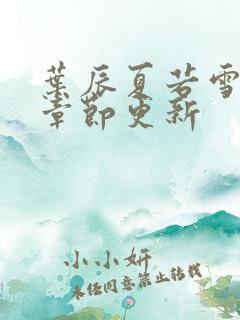 葉辰夏若雪
章節更新
小小妍
未经同意禁止转载